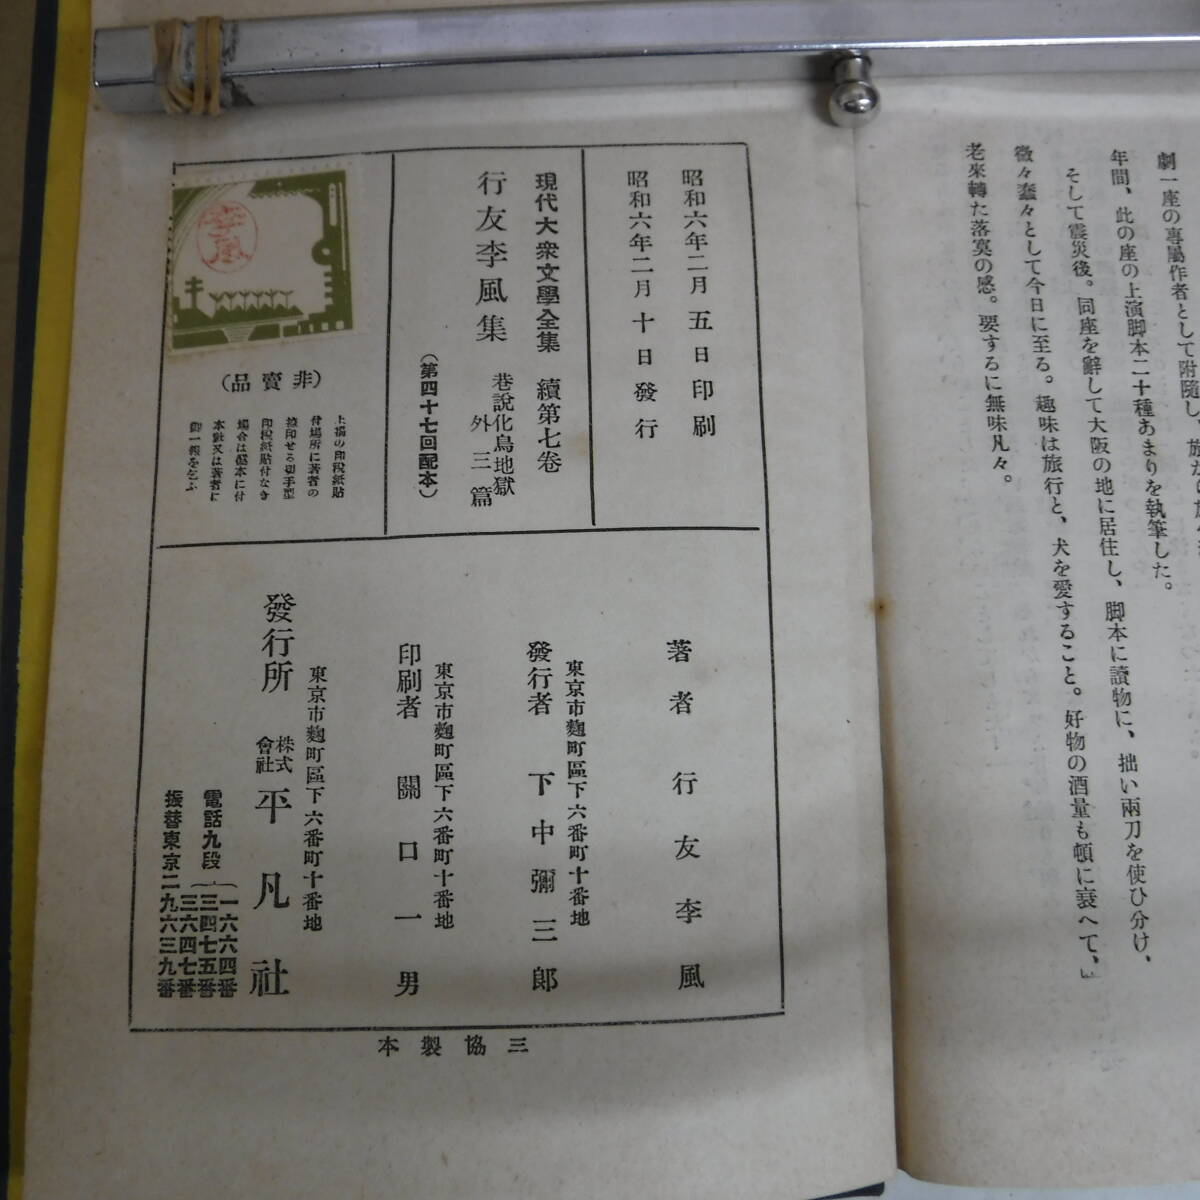 劇一座の專屬作者として附隨し、旅から旅
年間、此の座の上演脚本二十種あまりを執筆した。
そして震災後。同座を辭して大阪の地に居住し、脚本に讀物に、拙い兩刀を使ひ分け、
微々蠢々として今日に至る。趣味は旅行と、犬を愛すること。好物の酒量も頓に衰へて、
老來轉た落寞の感。要するに無味凡々。」
昭和六年二月五日印刷
昭和六年二月十日發行
現代大衆文學全集 續第七卷
行友李風集 巷說化鳥地獄
外三篇
(第四十七回配本)
(非賣品)
上欄の印稅紙貼
付場所に著者の
檢印せる切手型
印稅紙貼付なき
場合は本社又は著者に
御一報を乞ふ
著者 行友李風
東京市麴町區下六番町十番地
發行者 下中彌三郎
東京市麴町區下六番町十番地
印刷者 關口一男
東京市麴町區下六番町十番地
發行所 株式會社 平凡社
電話九段 一六六四番
三四七五番
三六四七番
振替東京二九六三九番
三協製本